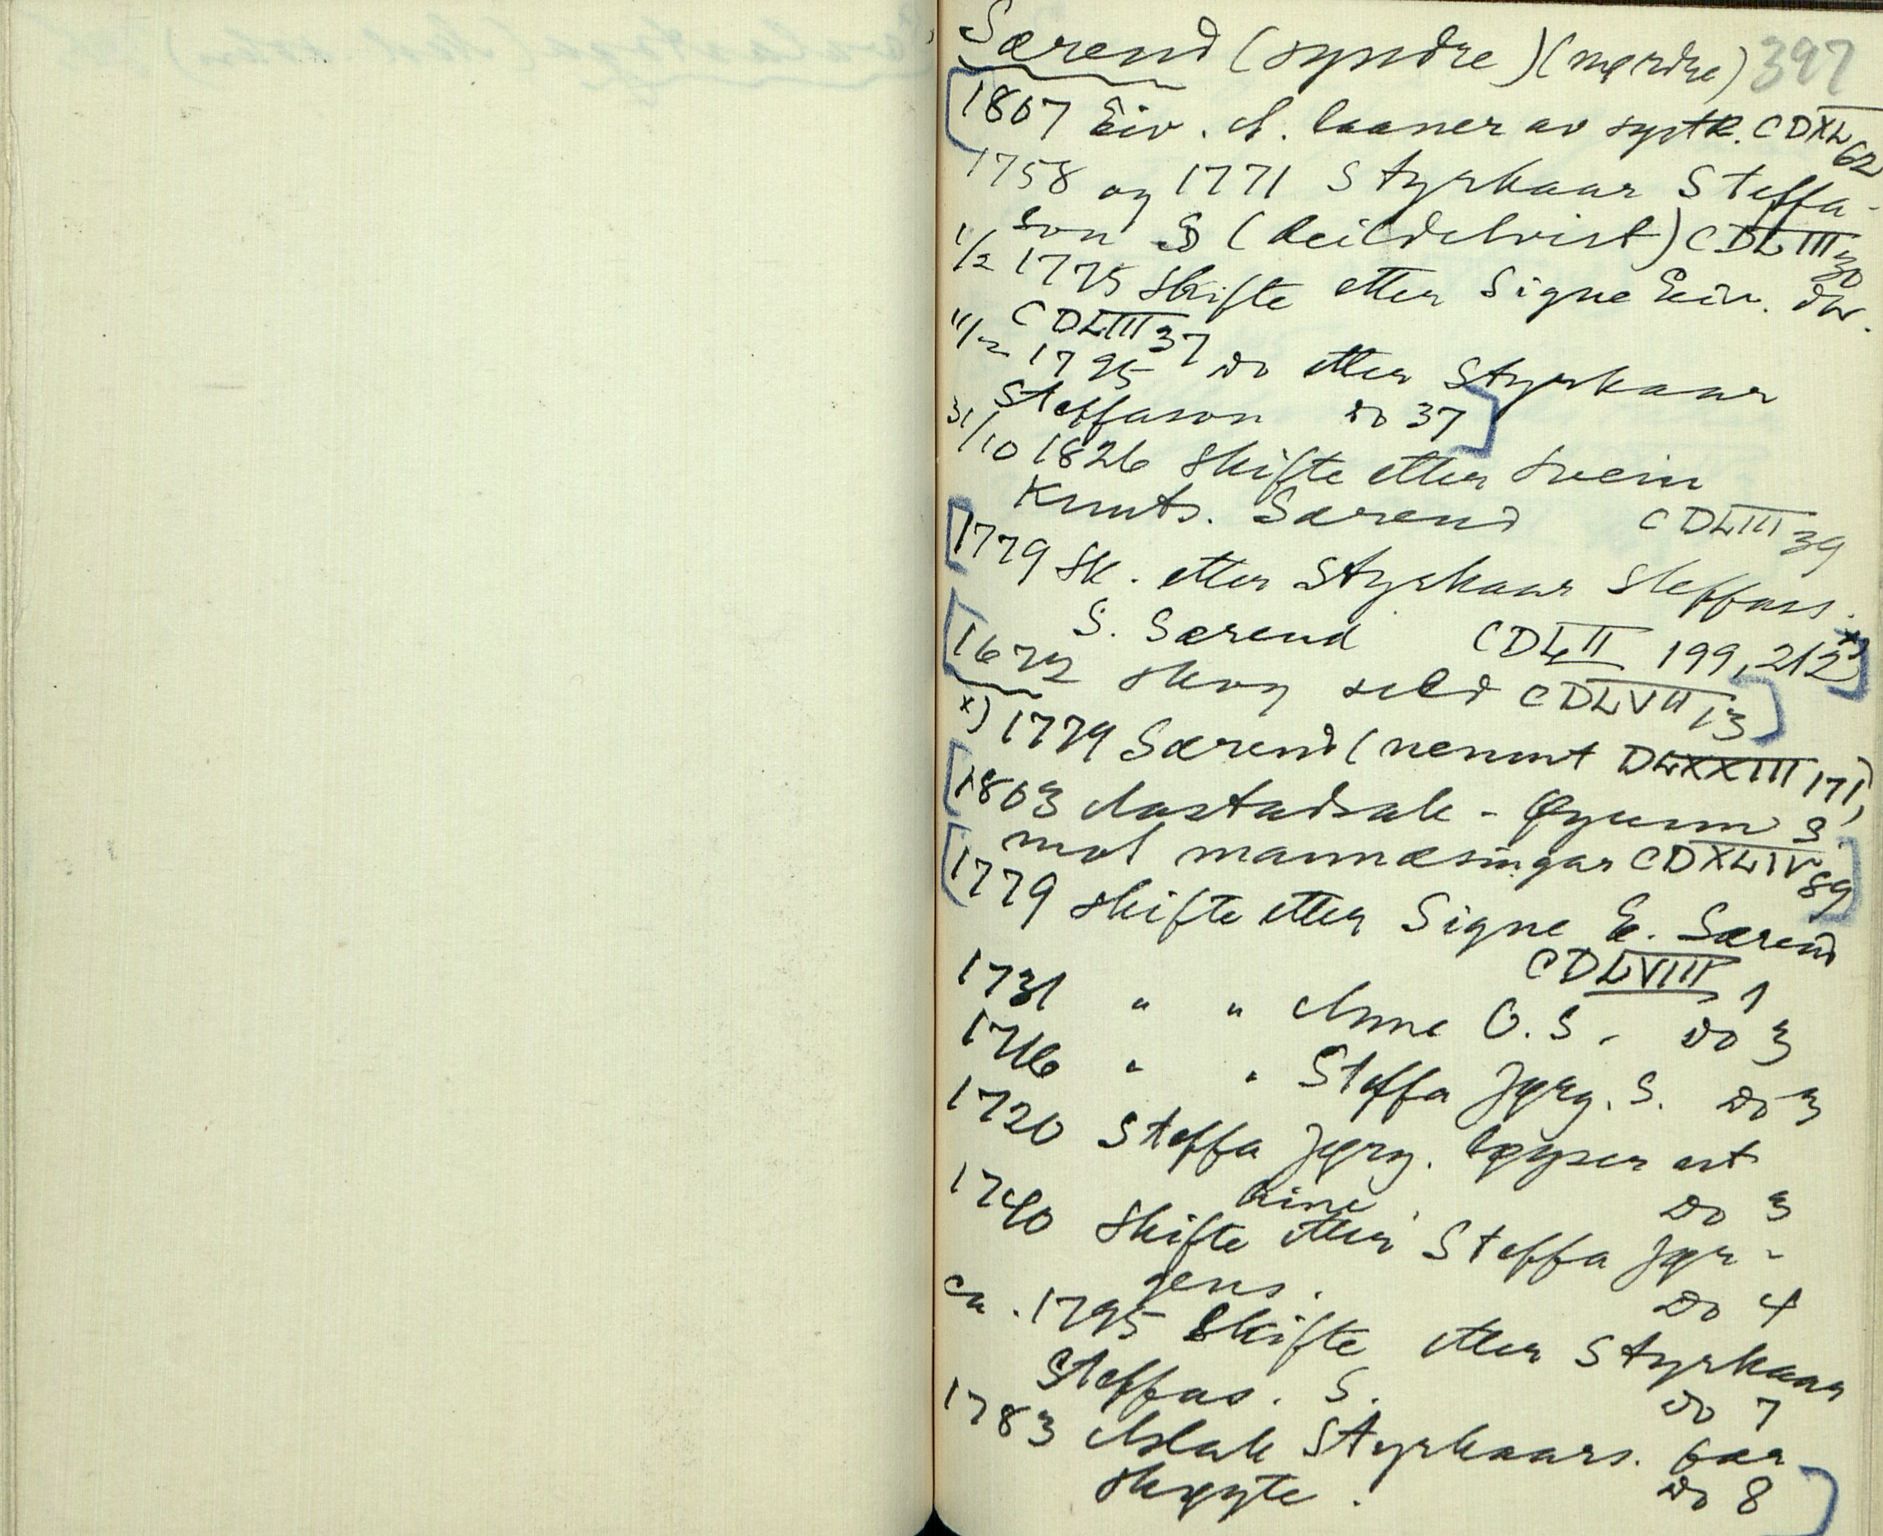 Særend (syndre) (nørdre) 397
[1807 Eiv. A. laaner av systk. CDXL 62
1758 og 1771 Styrkaar Steffa-
son S (deildetvist) CDLIII 30
1/2 1775 Skifte etter Signe Eiv. dtr.
CDLIII 37
11/2 1795 do etter Styrkaar
Steffason do 37]
31/10 1826 Skifte etter Svein
Knuts. Særend CDLIII 39
[1779 Sk. etter Styrkaar Steffass.
S. Særend CDLII 199, 212 x)]
[1672 skog seld CDLVII 13]
x) 1779 Særend (nemnt DLXXIII 171)
[1803 Aastadsak - Øyunn S.
mot mannæsingar CDXLIV 89]
[1779 skifte etter Signe E. Særend
CDLVIII 1
1731 " " Anne O. S. do 3
1716 " " Steffa Jørg. S. do 3
1720 Steffa Jørg. løyser ut
sine do 3
1740 Skifte etter Steffa Jør-
gens. do 4
ca. 1795 Skifte etter Styrkaar
Steffas. S. do 7
1783 Aslak Styrkaars. faar
skøyte. do 8]